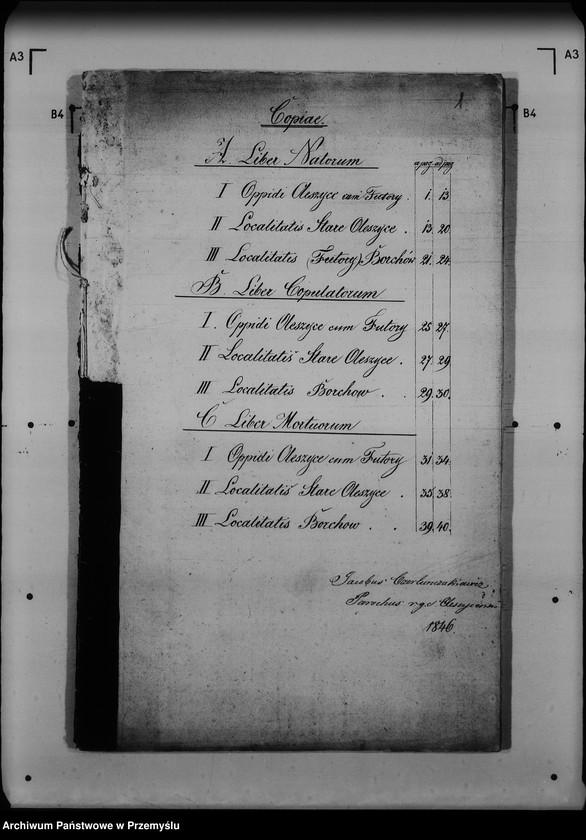 A3
A3
B4
B4
1
Copiae.
A. Liber Natorum a pag. ad pag
I Oppidi Oleszyce cum Futory . 1. 13
II Localitatis Stare Oleszyce . 13 20
III Localitatis (Futory) Borchów 21. 24.
B. Liber Copulatorum
I. Oppidi Oleszyce cum Futory 25 27.
II Localitatis Stare Oleszyce . 27. 29
III Localitatis Borchow . . 29. 30.
C Liber Mortuorum
I Oppidi Oleszyce cum Futory 31. 34.
II Localitatis Stare Oleszyce . 35. 38.
III Localitatis Borchow . . 39. 40.
Jacobus
Parochus r. g. c.
1846.
Archiwum Państwowe w Przemyślu